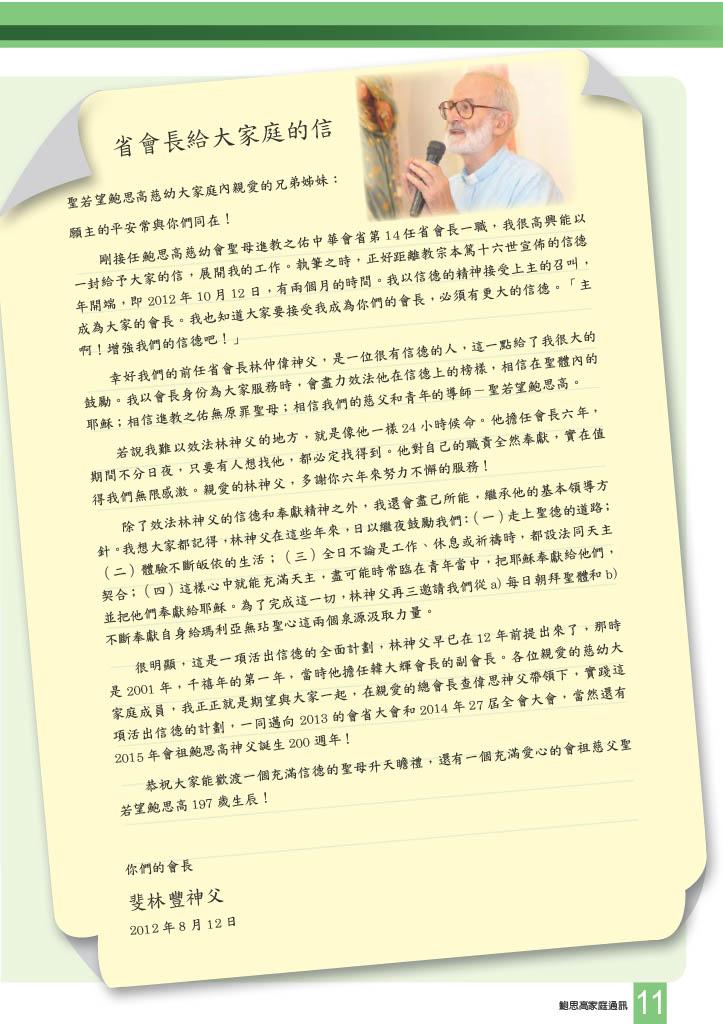 省會長給大家庭的信
聖若望鮑思高慈幼大家庭內親愛的兄弟姊妹：
願主的平安常與你們同在！
剛接任鮑思高慈幼會聖母進教之佑中華會省第14任省會長一職，我很高興能以
一封給予大家的信，展開我的工作。執筆之時，正好距離教宗本篤十六世宣佈的信德
年開端，即 2012 年 10 月 12 日，有兩個月的時間。我以信德的精神接受上主的召叫，
成為大家的會長。我也知道大家要接受我成為你們的會長，必須有更大的信德。「主
啊！增強我們的信德吧！」
幸好我們的前任省會長林仲偉神父，是一位很有信德的人，這一點給了我很大的
鼓勵。我以會長身份為大家服務時，會盡力效法他在信德上的榜樣，相信在聖體內的
耶穌；相信進教之佑無原罪聖母；相信我們的慈父和青年的導師－聖若望鮑思高。
若說我難以效法林神父的地方，就是像他一樣 24 小時候命。他擔任會長六年，
期間不分日夜，只要有人想找他，都必定找得到。他對自己的職責全然奉獻，實在值
得我們無限感激。親愛的林神父，多謝你六年來努力不懈的服務！
除了效法林神父的信德和奉獻精神之外，我還會盡己所能，繼承他的基本領導方
針。我想大家都記得，林神父在這些年來，日以繼夜鼓勵我們：（一）走上聖德的道路；
（二）體驗不斷皈依的生活；（三）全日不論是工作、休息或祈禱時，都設法同天主
契合；（四）這樣心中就能充滿天主，盡可能時常臨在青年當中，把耶穌奉獻給他們，
並把他們奉獻給耶穌。為了完成這一切，林神父再三邀請我們從 a) 每日朝拜聖體和 b)
不斷奉獻自身給瑪利亞無玷聖心這兩個泉源汲取力量。
很明顯，這是一項活出信德的全面計劃，林神父早已在 12 年前提出來了，那時
是 2001 年，千禧年的第一年，當時他擔任韓大輝會長的副會長。各位親愛的慈幼大
家庭成員，我正正就是期望與大家一起，在親愛的總會長查偉思神父帶領下，實踐這
項活出信德的計劃，一同邁向 2013 的會省大會和 2014 年 27 屆全會大會，當然還有
2015 年會祖鮑思高神父誕生 200 週年！
恭祝大家能歡渡一個充滿信德的聖母升天瞻禮，還有一個充滿愛心的會祖慈父聖
若望鮑思高 197 歲生辰！
你們的會長
斐林豐神父
2012 年 8 月 12 日
鮑思高家庭通訊 11